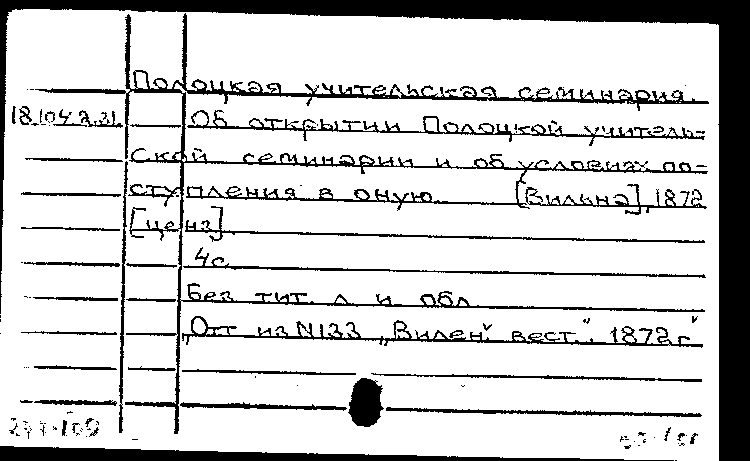 Полоцкая учительская семинария.
18.104.2.31. Об открытии Полоцкой учитель-
ской семинарии и об условиях по-
ступления в оную. [Вильна], 1872
[ценз].
4с.
Без тит. л. и обл.
„Отт из N133 „Вилен. вест.". 1872г"